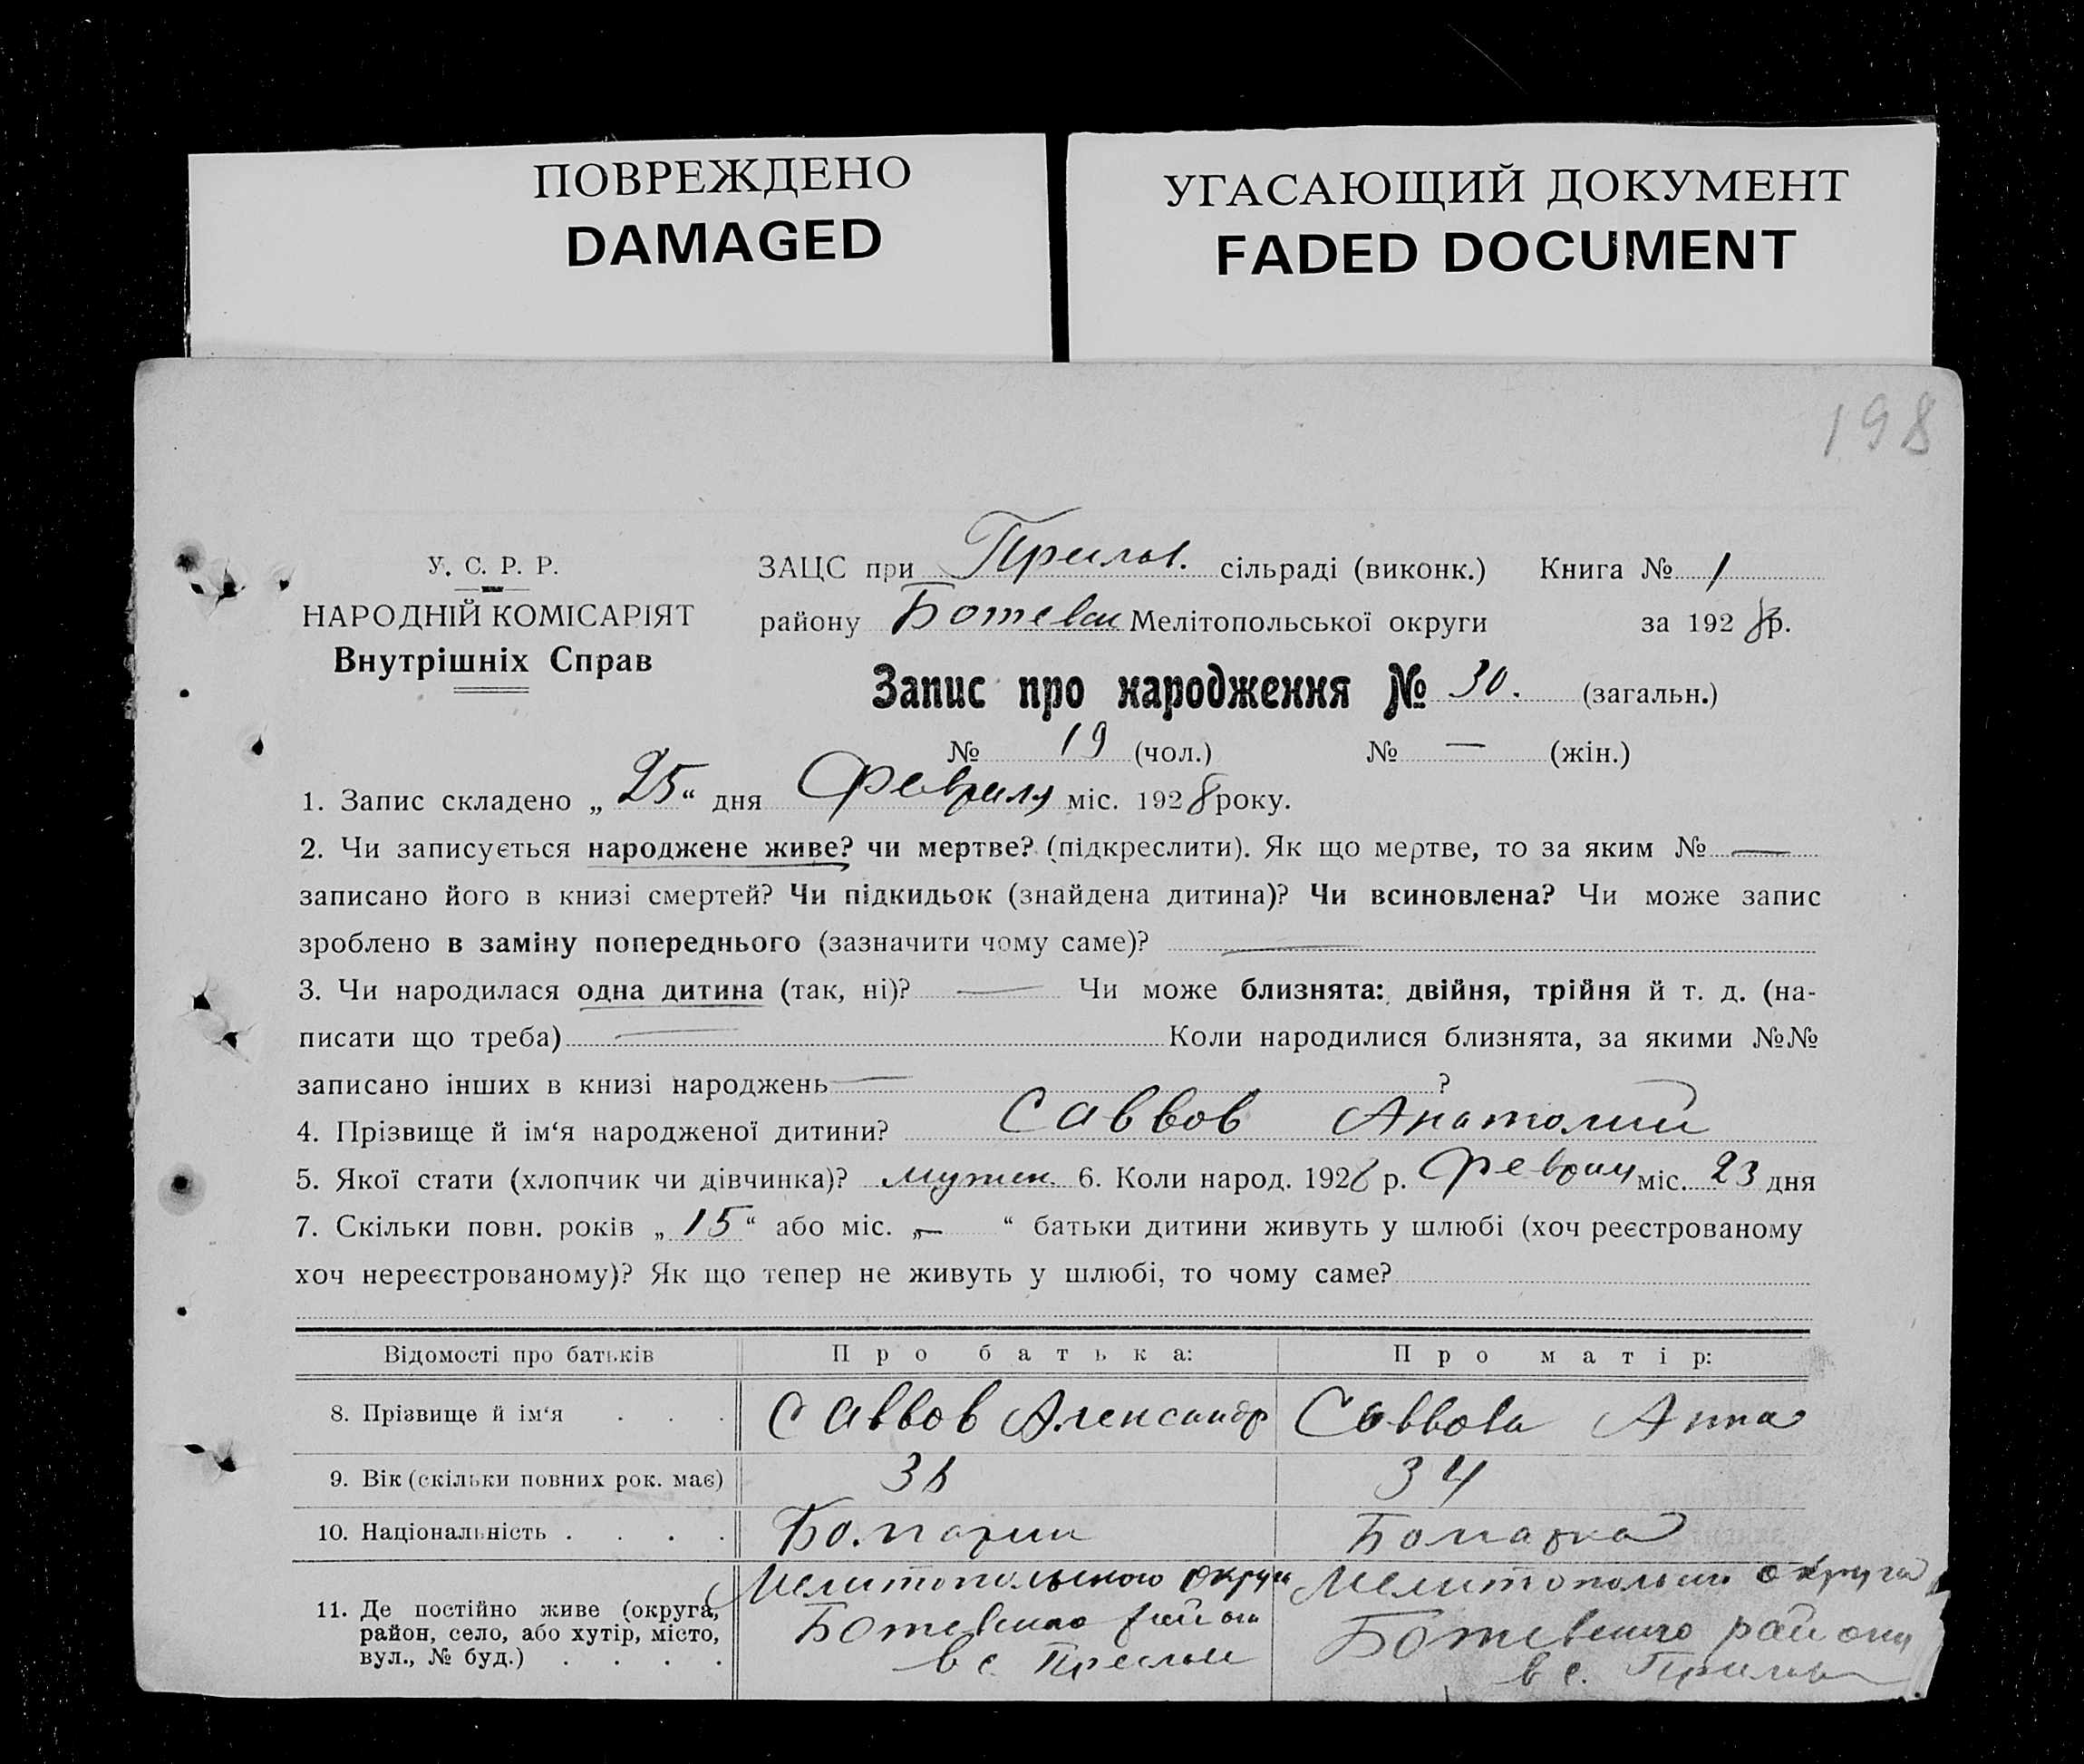 ПОВРЕЖДЕНО
DAMAGED
УГАСАЮЩИЙ ДОКУМЕНТ
FADED DOCUMENT
198
У. С. Р. Р.
НАРОДНІЙ КОМІСАРІЯТ
Внутрішніх Справ
ЗАЦС при сільраді (виконк.) Книга № 1
району Ботевск Мелітопольської округи за 1928 р.
Запис про народження № 30. (загальн.)
№ 19 (чол.) № — (жін.)
1. Запис складено „ 25 “ дня Февраля міс. 1928 року.
2. Чи записується народжене живе? чи мертве? (підкреслити). Як що мертве, то за яким № —
записано його в книзі смертей? Чи підкидьок (знайдена дитина)? Чи всиновлена? Чи може запис
зроблено в заміну попереднього (зазначити чому саме)? —
3. Чи народилася одна дитина (так, ні)? — Чи може близнята: двійня, трійня й т. д. (на-
писати що треба) — Коли народилися близнята, за якими №№
записано інших в книзі народжень — ?
4. Прізвище й ім‘я народженої дитини? Саввов Анатолий
5. Якої стати (хлопчик чи дівчинка)? мужск. 6. Коли народ. 1928 р. Феврал міс. 23 дня
7. Скільки повн. років „ 15 “ або міс. „ — “ батьки дитини живуть у шлюбі (хоч реєстрованому
хоч нереєстрованому)? Як що тепер не живуть у шлюбі, то чому саме?
Відомості про батьків Про батька: Про матір:
8. Прізвище й ім‘я . . . Саввов Александр Саввова Анна
9. Вік (скільки повних рок. має) 38 34
10. Національність . . . . Болгарин Болгарка
11. Де постійно живе (округа, район, село, або хутір, місто, вул., № буд.) . . . .
Мелитопольского округа
Ботевского района
в с.
Мелитопольск округа
Ботевского района
в с.